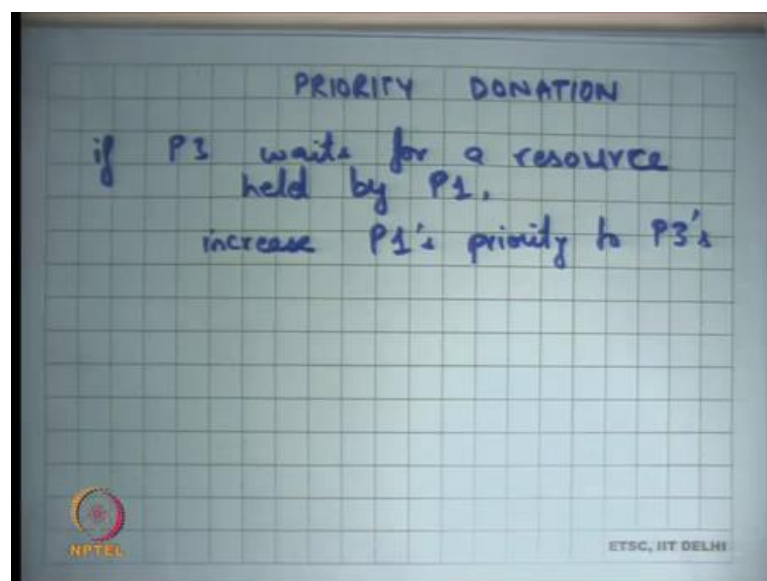 PRIORITY DONATION
if P3 waits for a resource
held by P1.
increase P1's priority to P3's
NPTEL
ETSC, IIT DELHI